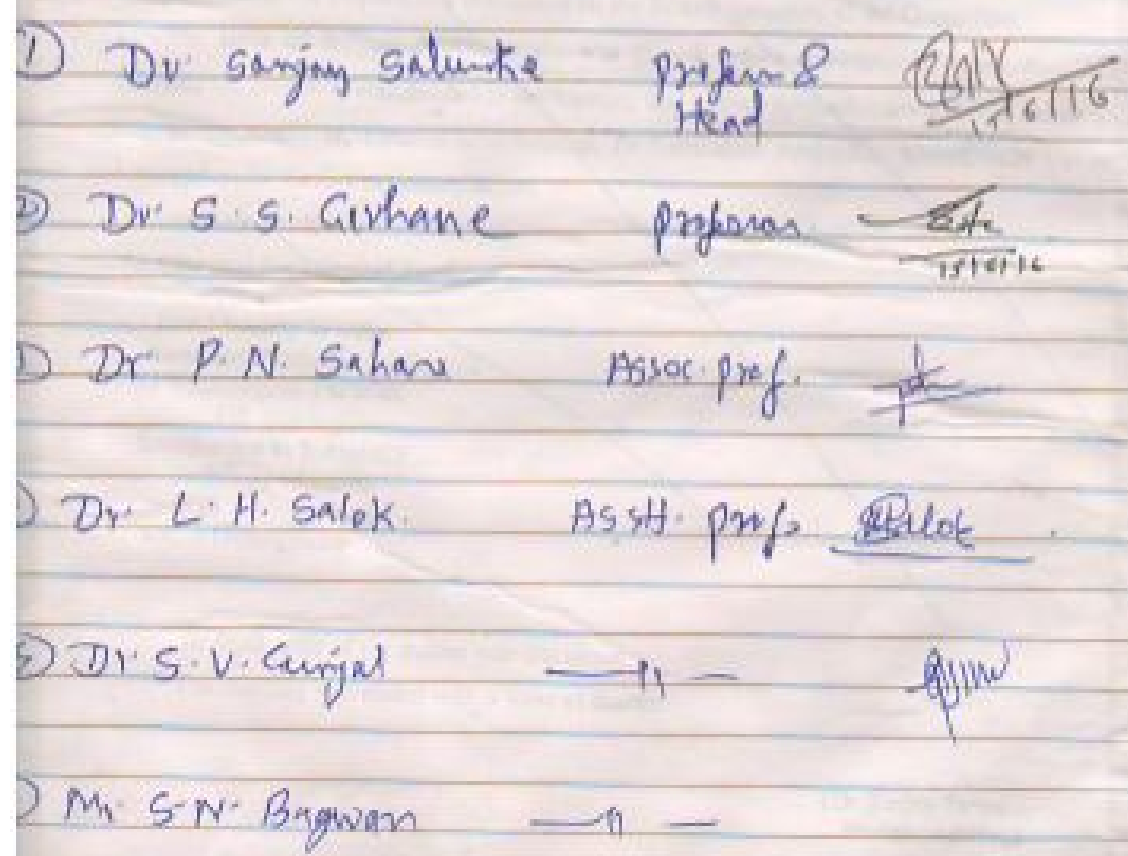 1) Dr. Sanjay Salunke Professor & 15/6/16
Head
2) Dr. S. S. Gevhane Professor 15/6/16
Dr. P. N. Sahane Assoc. prof.
Dr. L. H. Salok. Asstt. prof. Salok
5) Dr. S. V. Gunjal —〃—
Mr. S. N. Bagwan —〃—